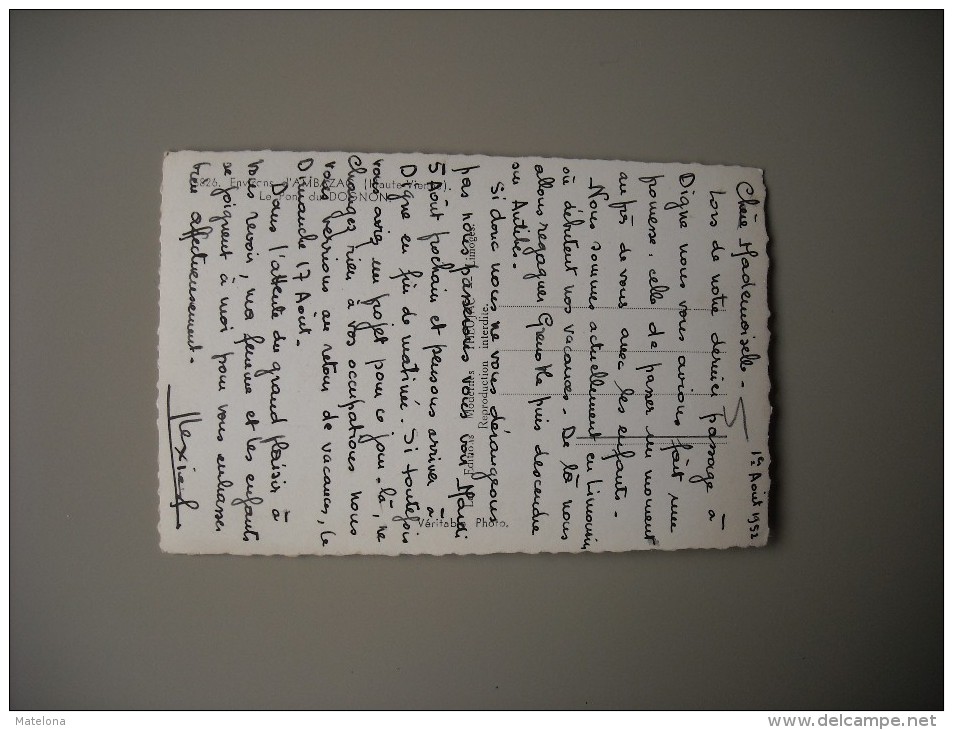 1er Août 1952
Chère Mademoiselle -
Lors de notre dernier passage à
Digne nous vous avions fait une
promesse : celle de passer un moment
auprès de vous avec les enfants -
Nous sommes actuellement en Limousin
où débutent nos vacances - De là nous
allons regagner Grenoble puis descendre
sur Antibes -
Si donc nous ne vous dérangeons
pas nous passerons vous voir Mardi
5 Août prochain et pensons arriver à
Digne en fin de matinée. Si toutefois
vous aviez un projet pour ce jour-là, ne
changez rien à vos occupations nous
vous verrions au retour de vacances, le
Dimanche 17 Août -
Dans l'attente du grand plaisir à
vous revoir, ma femme et les enfants
se joignent à moi pour vous embrasser
bien affectueusement -
826. Environs d'AMBAZAC (Haute-Vienne).
Le Pont du DOGNON
Les Editions Modernes
Limoges
Reproduction interdite.
Véritable Photo.
Matelona
www.delcampe.net